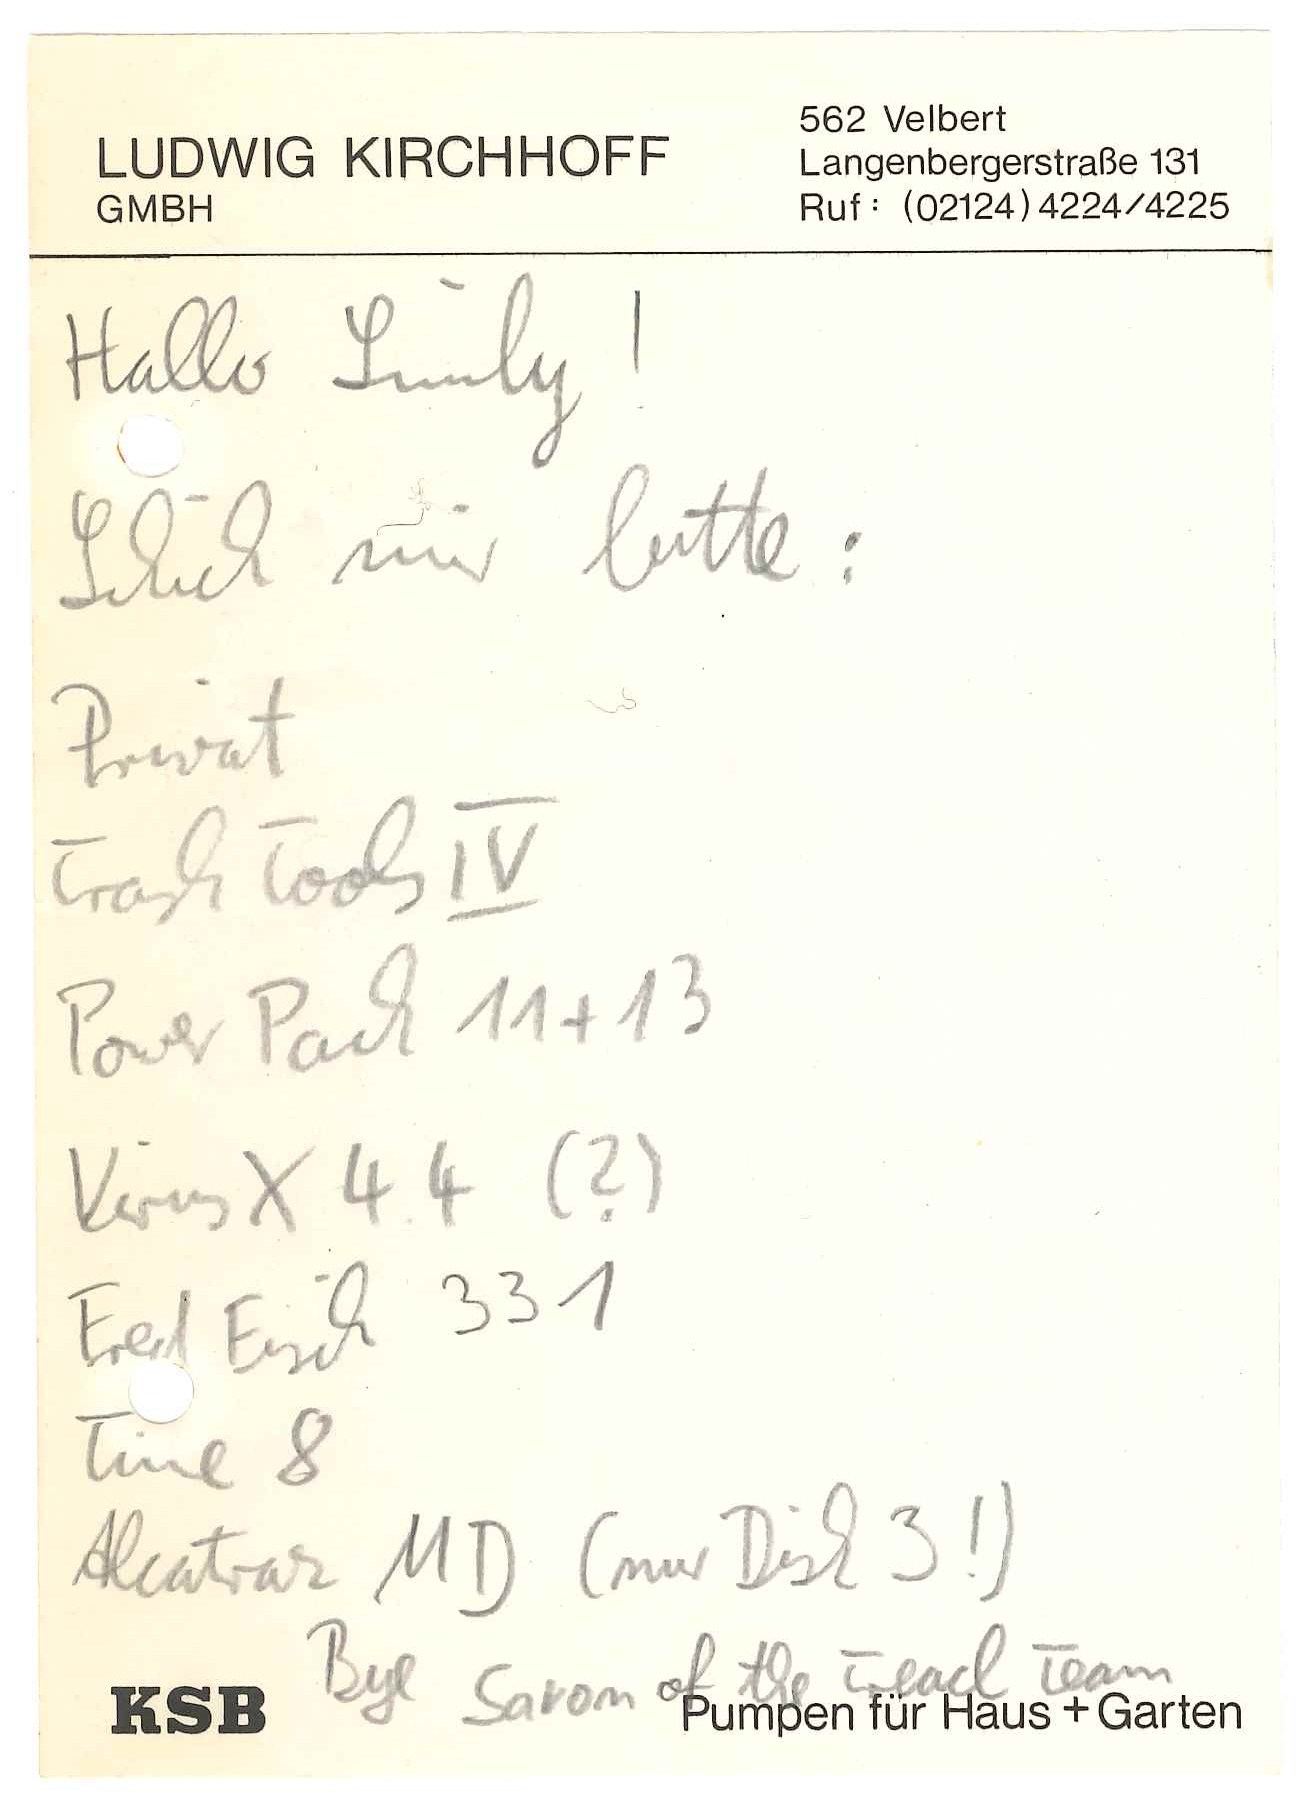 LUDWIG KIRCHHOFF
GMBH
562 Velbert
Langenbergerstraße 131
Ruf: (02124) 4224/4225
Hallo Smily!
Schick mir bitte:
Privat
Trash Tools IV
Power Pack 11+13
Virus X 4.4 (?)
Fred Fisch 331
Time 8
Alcatraz MD (nur Disk 3!)
Bye Savom of the Team
KSB
Pumpen für Haus + Garten